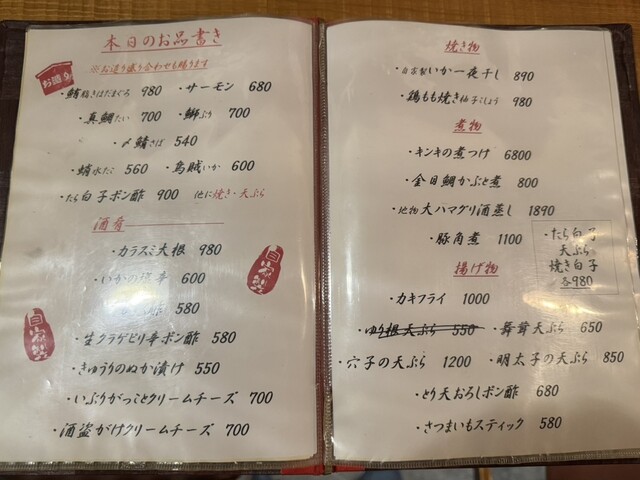 本日のお品書き
※お造り盛り合わせも賜ります
・鮪 980 ・サーモン 680
・真鯛たい 700 ・鰤ぶり 700
・〆鯖さば 540
・蛸水だこ 560 ・烏賊いか 600
・たら白子ポン酢 900 他に焼き・天ぷら
酒肴
・カラスミ大根 980
・いかの塩辛 600
580
・生クラゲピリ辛ポン酢 580
・きゅうりのぬか漬け 550
・いぶりがっことクリームチーズ 700
・酒盗がけクリームチーズ 700
自家製
自家製
焼き物
・自家製いか一夜干し 890
・鶏もも焼き柚子こしょう 980
煮物
・キンキの煮つけ 6800
・金目鯛かぶと煮 800
・地物大ハマグリ酒蒸し 1890
・豚角煮 1100
・たら白子
天ぷら
焼き白子
各980
揚げ物
・カキフライ 1000
・ゆり根天ぷら 550 ・舞茸天ぷら 650
・穴子の天ぷら 1200 ・明太子の天ぷら 850
・とり天おろしポン酢 680
・さつまいもスティック 580